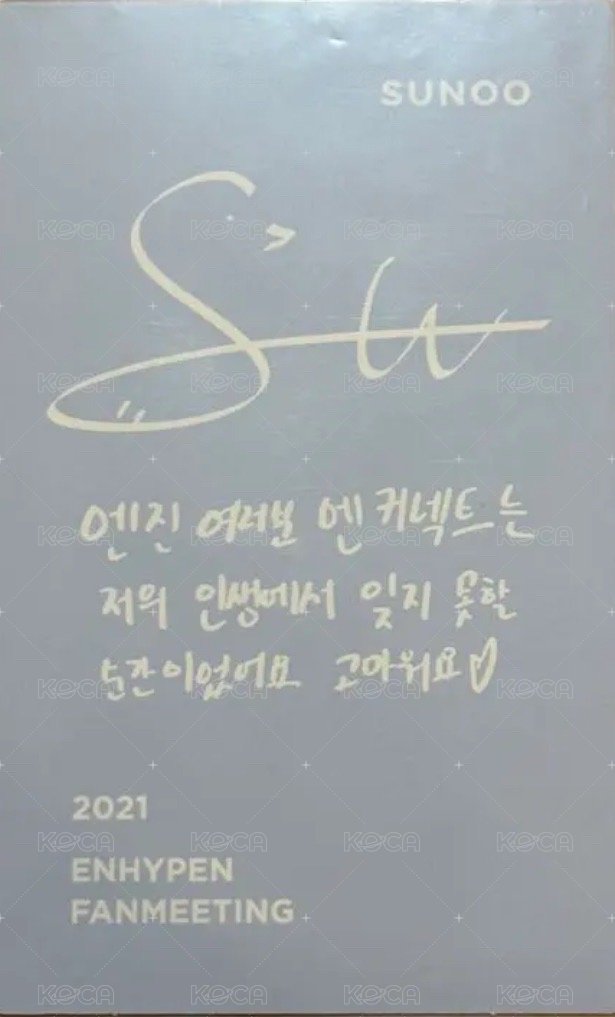 SUNOO
Su
엔진 여러분 엔커넥트는
저의 인생에서 잊지 못할
순간이었어요 고마워요♡
2021
ENHYPEN
FANMEETING
KOCA